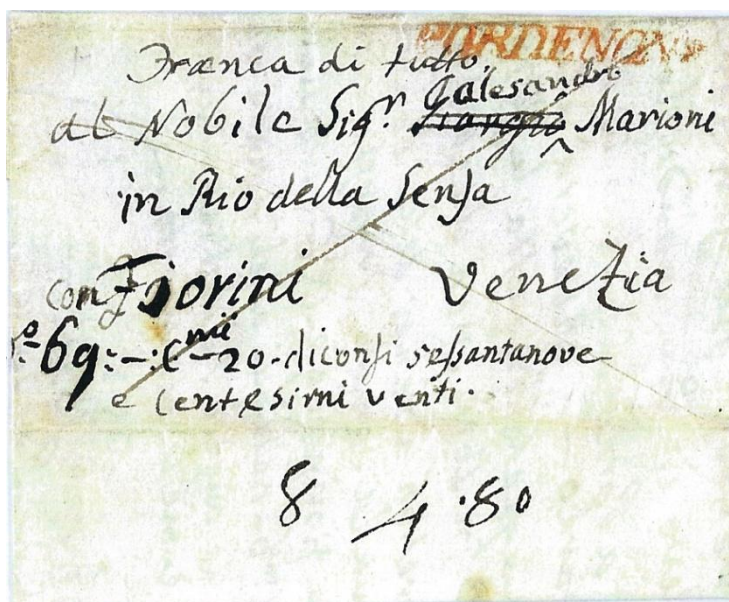 PORDENONE
Franca di tutto.
Galesandro
al Nobile Sig.r Giorgio ^ Marioni
in Rio della Senſa
con Fiorini Venezia
N.o 69:-:C.mi 20. diconſi seſsantanove
e Centesimi venti.
8 4.80